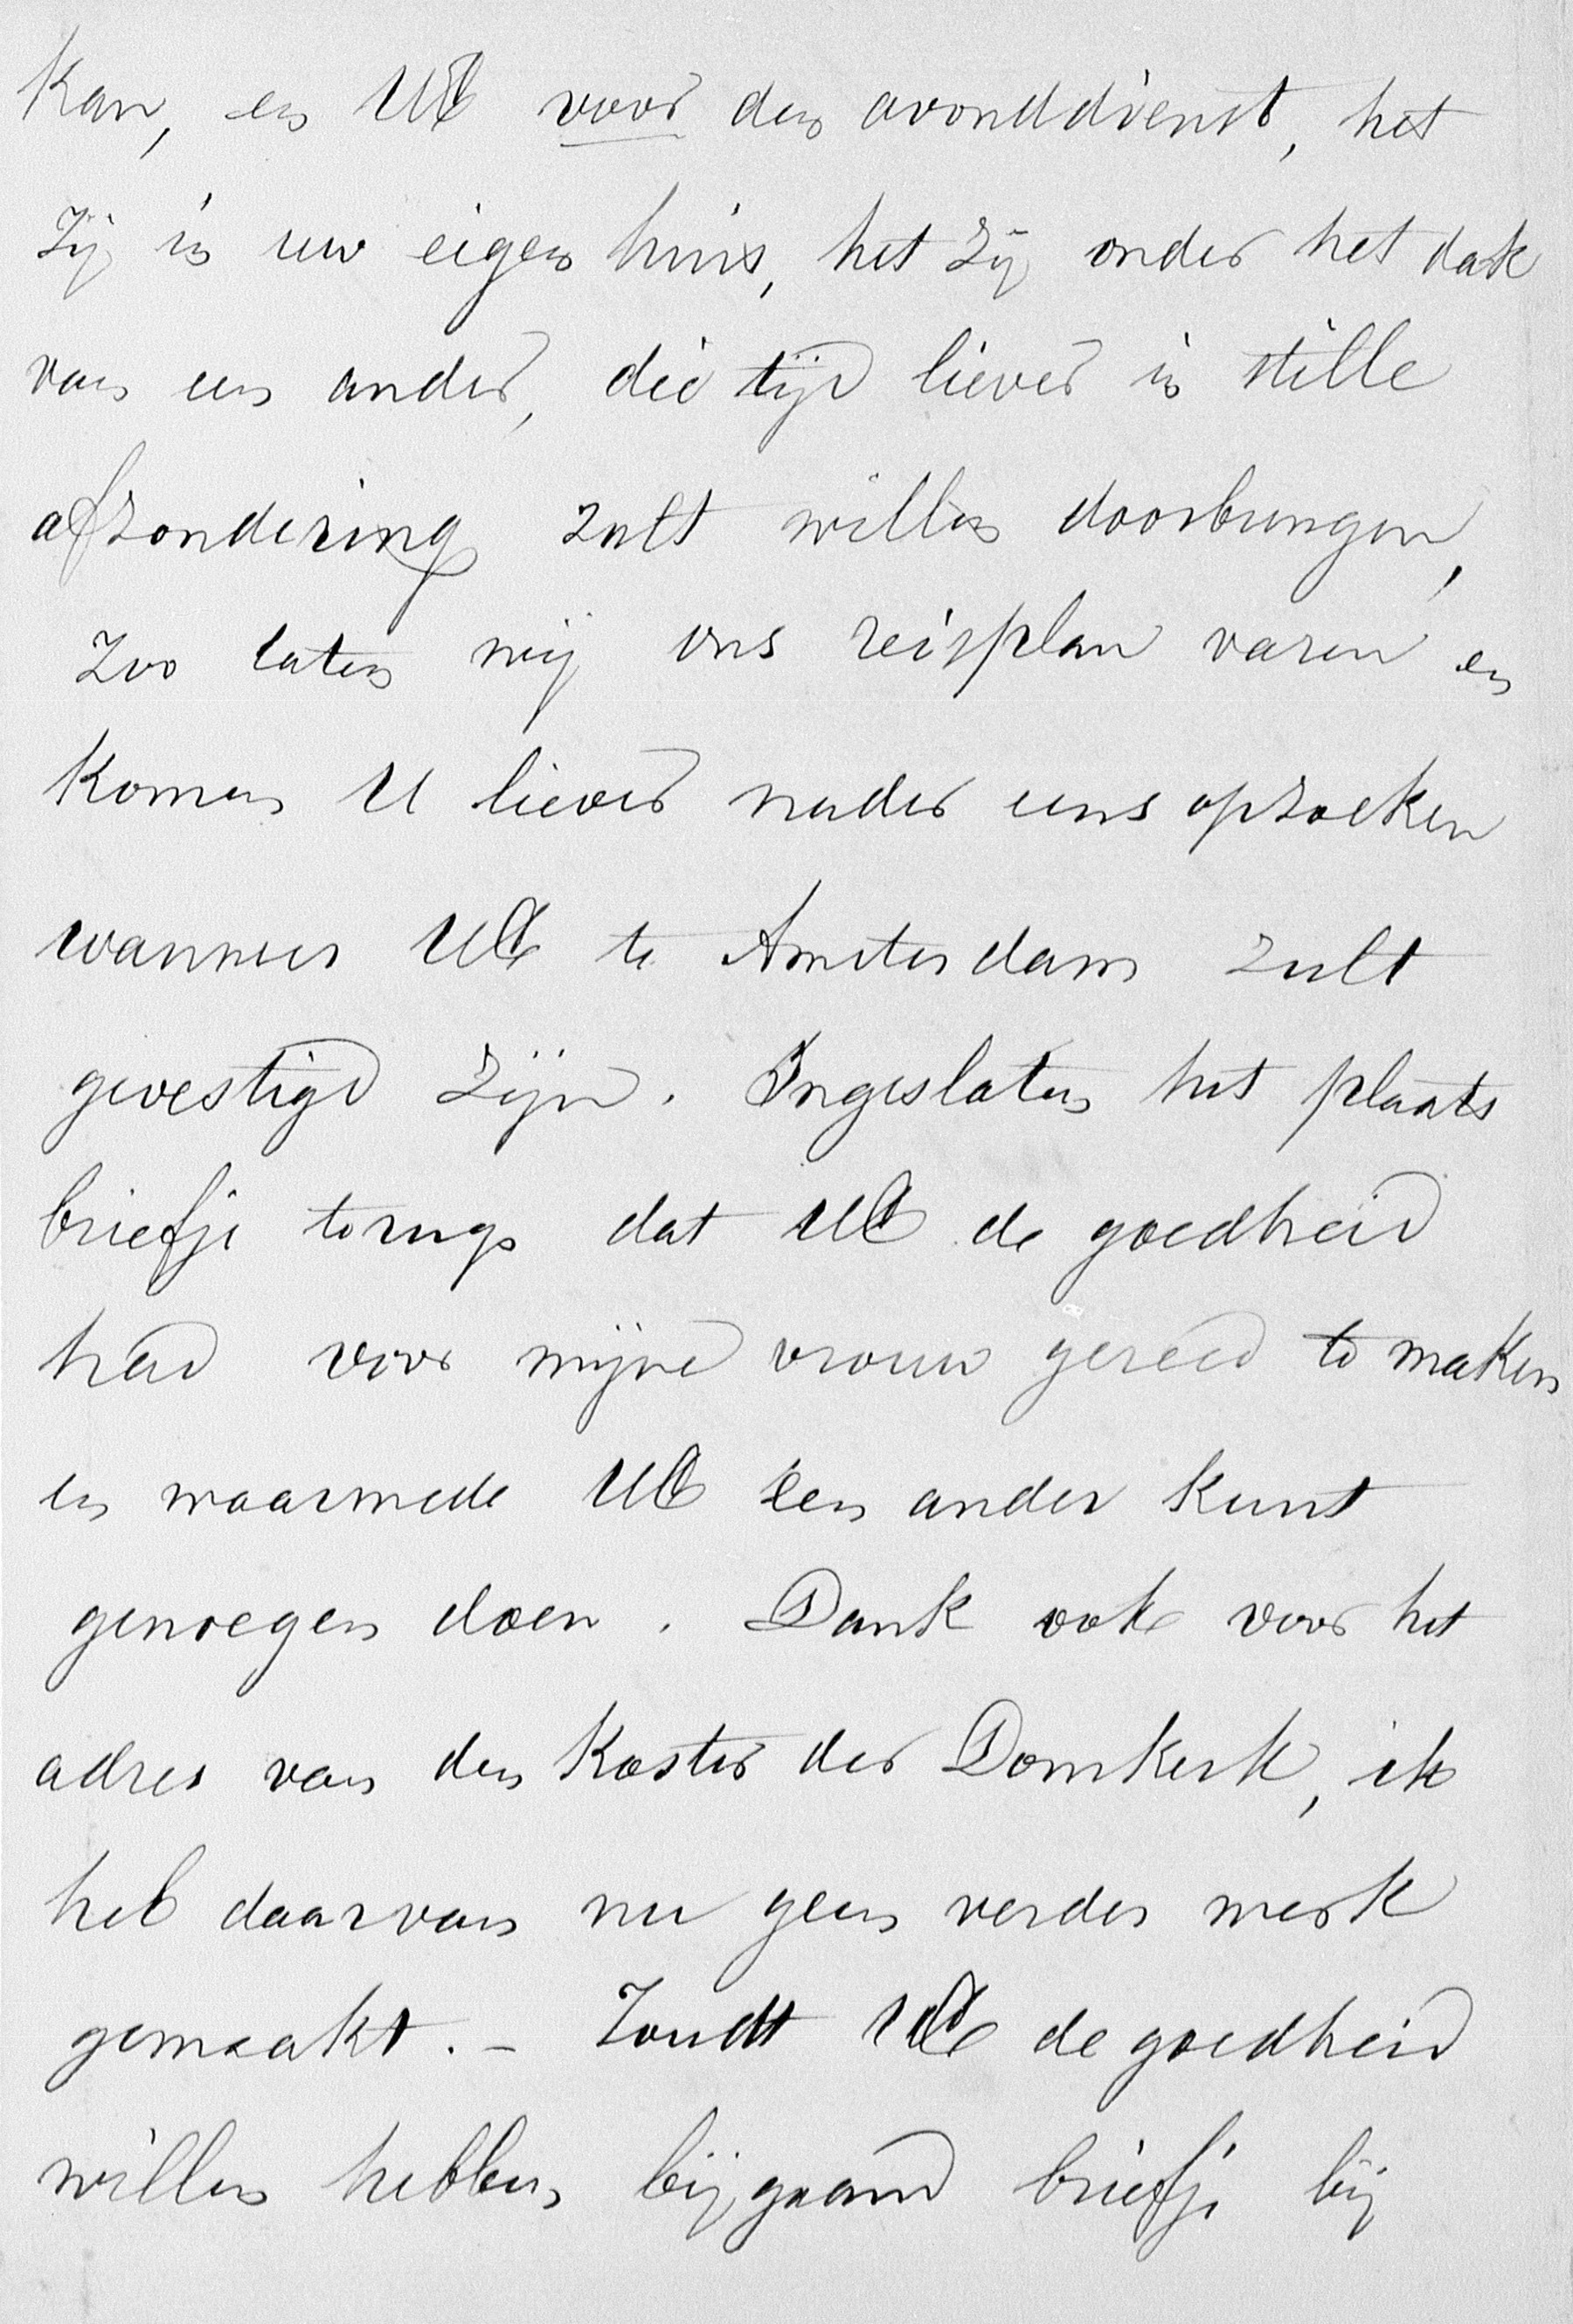 kan, en UE voor den avonddienst, het
zij in uw eigen huis, het zij onder het dak
van een ander, die tijd liever in stille
afzondering zult willen doorbrengen,
zoo laten wij ons reisplan varen en
komen U liever nader eens opzoeken
wanneer UE te Amsterdam zult
gevestigd zijn. Ingesloten het plaats
briefje terug dat UE de goedheid
had voor mijne vrouw gereed te maken
en waarmede UE een ander kunt
genoegen doen. Dank ook voor het
adres van den Koster der Domkerk, ik
heb daarvan nu geen verder werk
gemaakt. - Zoudt UE de goedheid
willen hebben bijgaand briefje bij